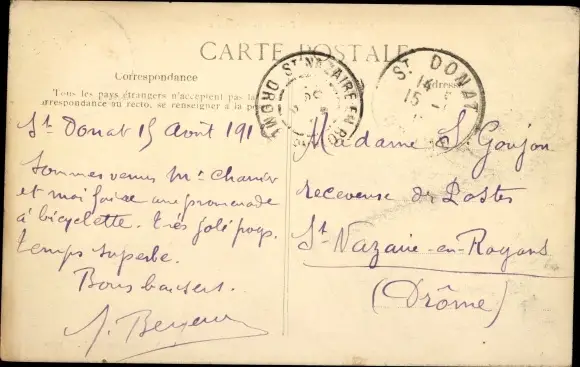 CARTE POSTALE
Correspondance
Tous les pays étrangers n'acceptent pas la
correspondance au recto, se renseigner à la po
Adresse
ST NAZAIRE EN RO
DROME
ST DONAT
15
St Donat 15 Août 191
Sommes venus Mr
et moi faire une promenade
à bicyclette. très joli pays.
temps superbe.
Bons baisers.
Madame S. Goujon
receveuse des Postes
St Nazaire-en-Royans
(Drôme)